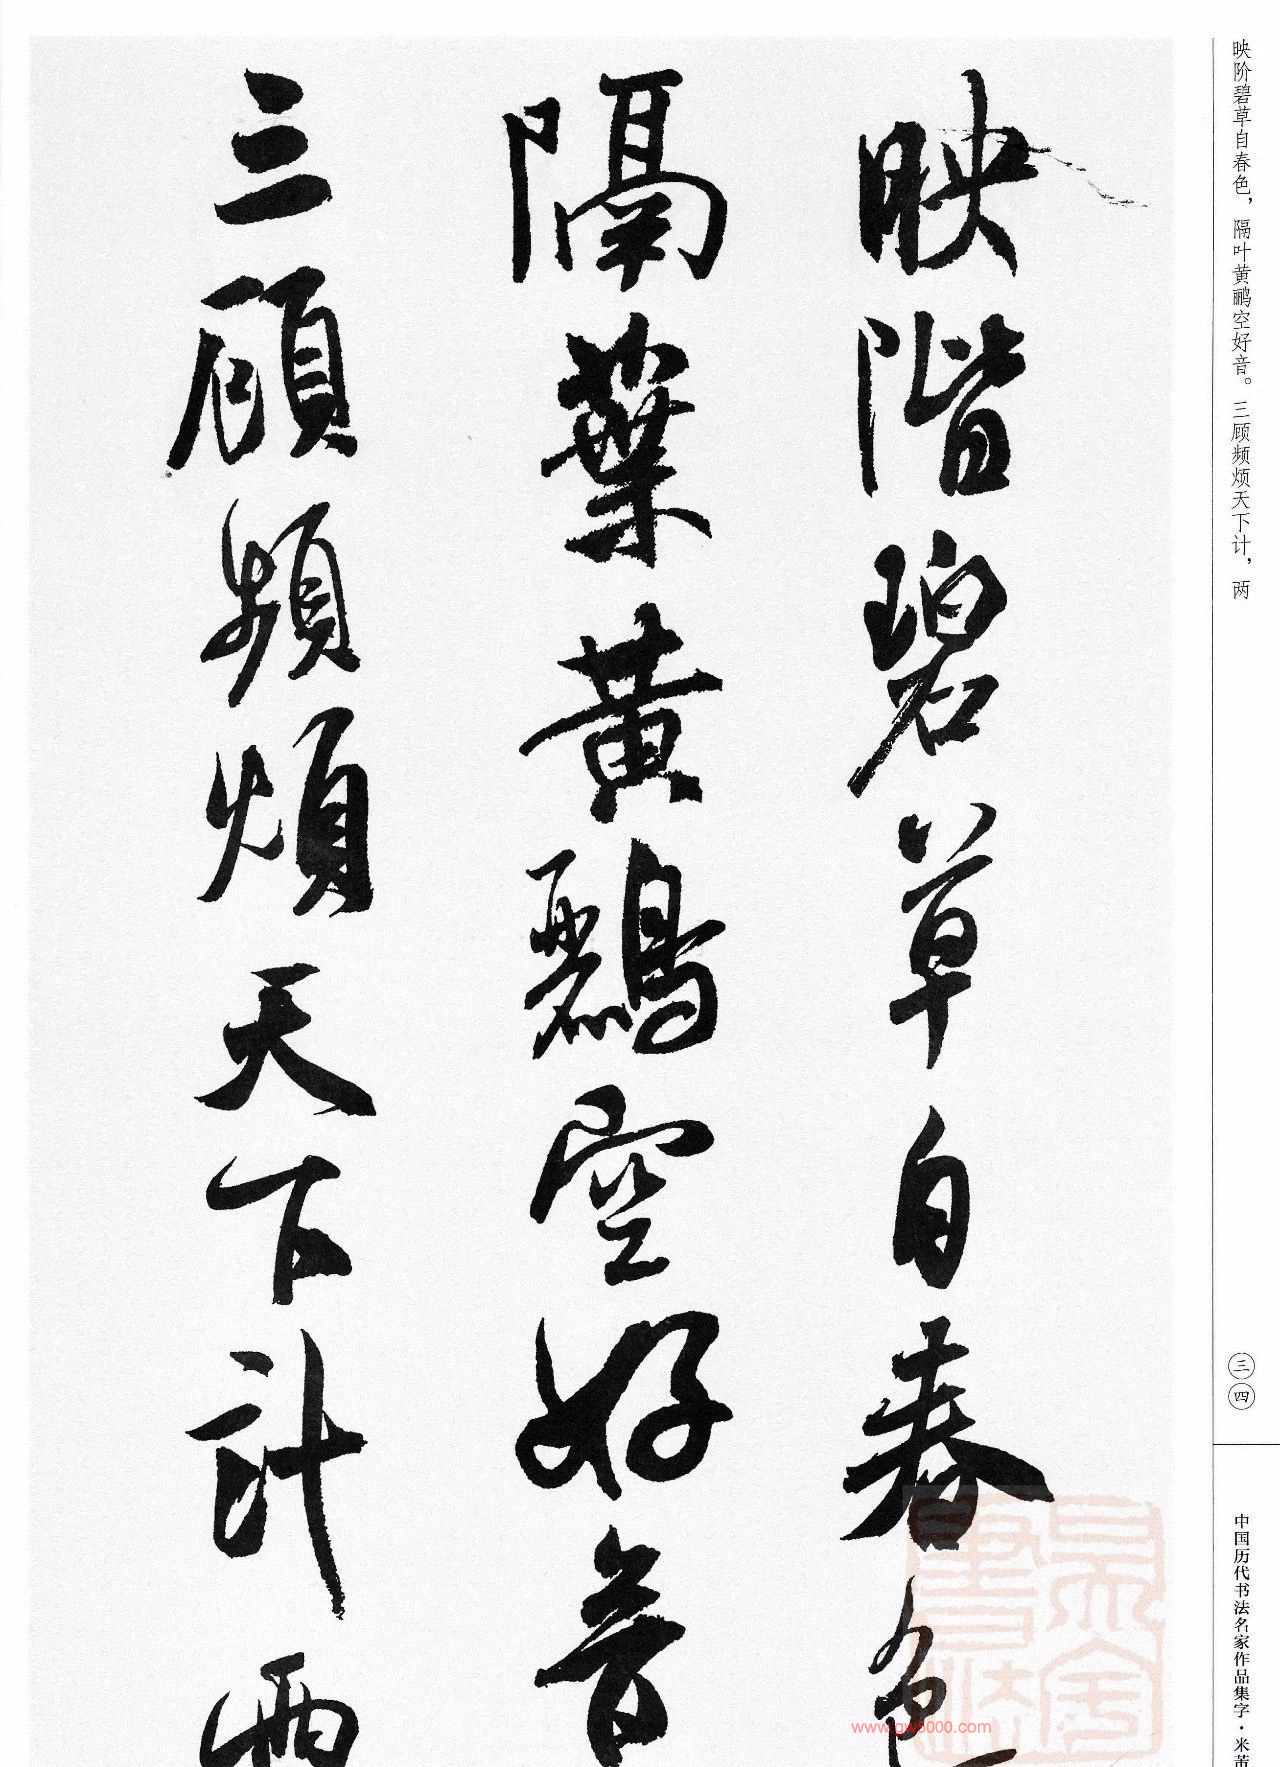 映阶碧草自春色，隔叶黄鹂空好音。三顾频烦天下计，两
映階碧草自春色
隔葉黃鸝空好音
三顧頻煩天下計兩
三四
中国历代书法名家作品集字·米芾
www.gw5000.com